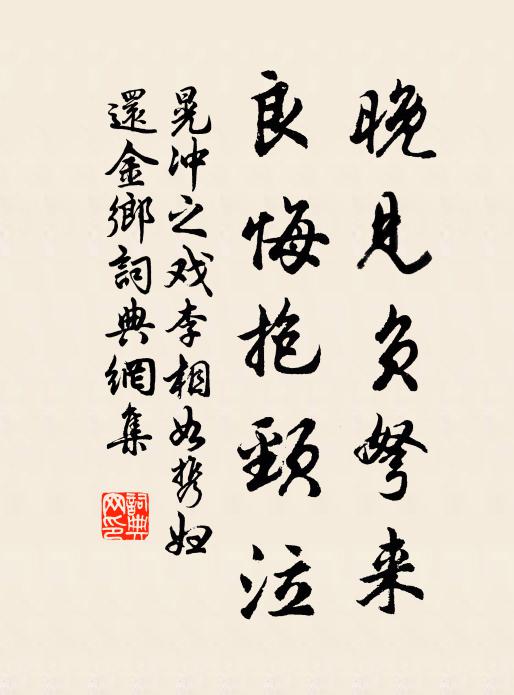 晚見負弩来
良悔抱頸泣
晁冲之戏李相如携妞
還金鄉詞典網集
詞典网印